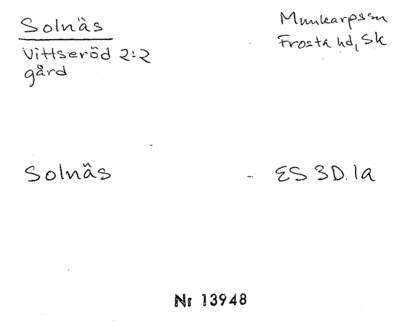 Solnäs
Munkarpssn
Vittseröd 2:2
Frosta hd, Sk
gård
Solnäs
- ES 3D.1a
Nr 13948